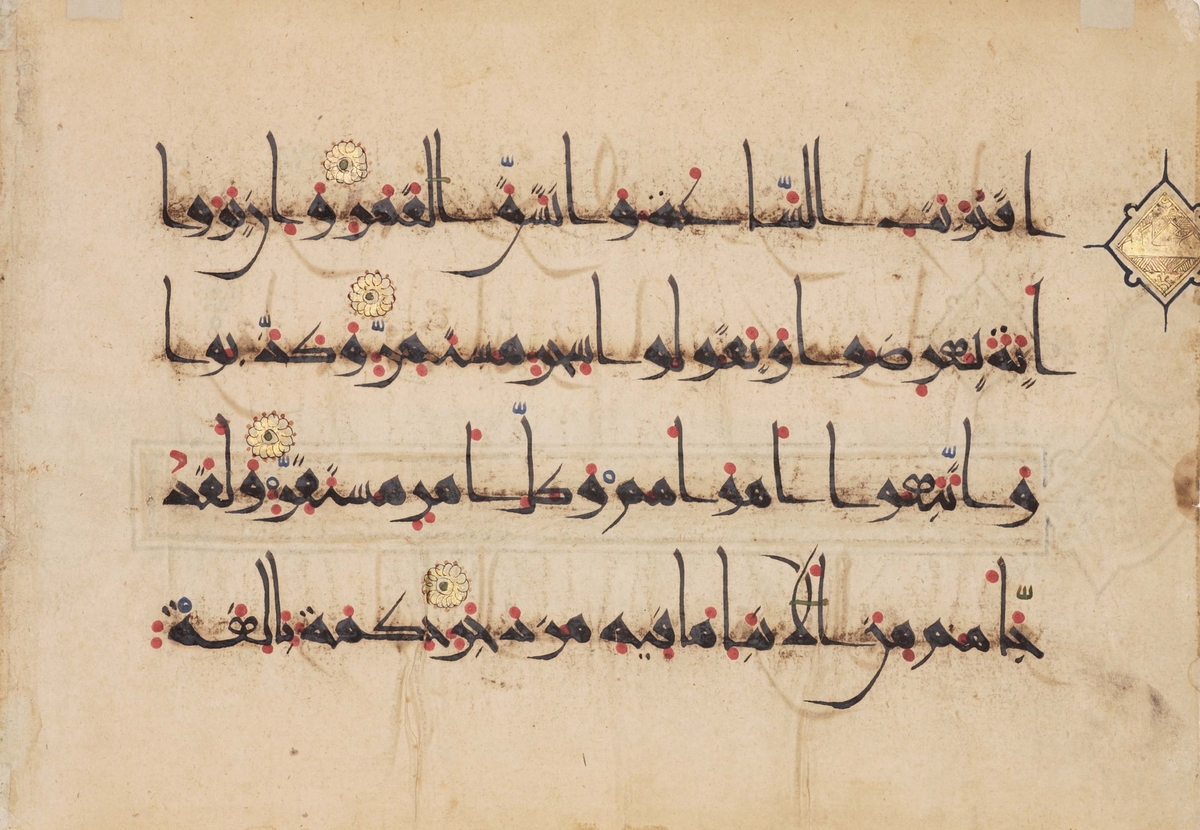 اقتربت الساعة وانشق القمر وان يروا
اية يعرضوا ويقولوا سحر مستمر وكذبوا
واتبعوا اهواهم وكل امر مستقر ولقد
جاهم من الانبا ما فيه مزدجر حكمة بالغة